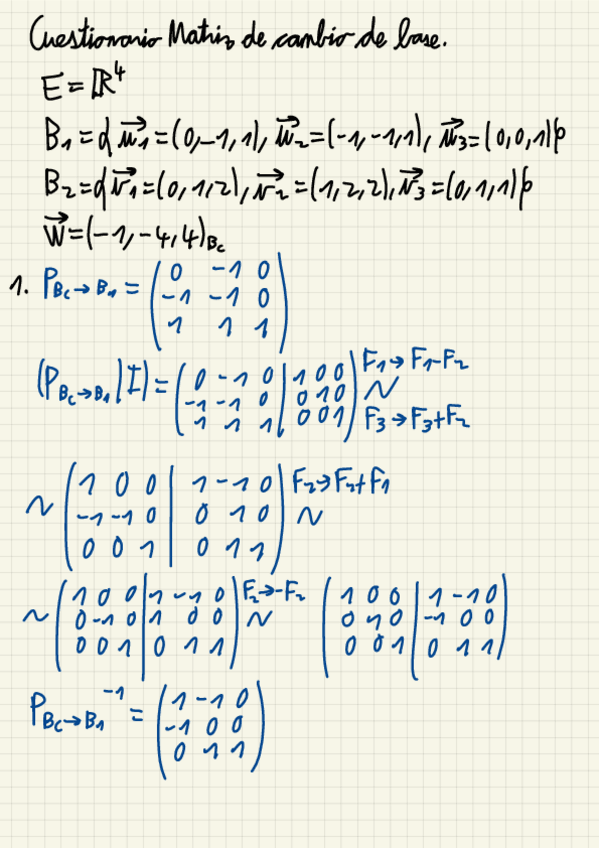 Cuestionario Matriz de cambio de base.
E = ℝ⁴
B₁ = { u⃗₁ = (0,-1,1), u⃗₂ = (-1,-1,1), u⃗₃ = (0,0,1) }
B₂ = { v⃗₁ = (0,1,2), v⃗₂ = (1,2,2), v⃗₃ = (0,1,1) }
w⃗ = (-1,-4,4)_Bc
1. P_Bc→B₁ = ( 0 -1 0
-1 -1 0
1 1 1 )
(P_Bc→B₁ | I) = ( 0 -1 0 | 1 0 0 F₁→F₁-F₂
-1 -1 0 | 0 1 0 ~
1 1 1 | 0 0 1 ) F₃→F₃+F₂
~ ( 1 0 0 | 1 -1 0 F₂→F₂+F₁
-1 -1 0 | 0 1 0 ~
0 0 1 | 0 1 1 )
~ ( 1 0 0 | 1 -1 0 F₂→-F₂ ( 1 0 0 | 1 -1 0
0 -1 0 | 1 0 0 ~ 0 1 0 | -1 0 0
0 0 1 | 0 1 1 ) 0 0 1 | 0 1 1 )
P_Bc→B₁⁻¹ = ( 1 -1 0
-1 0 0
0 1 1 )